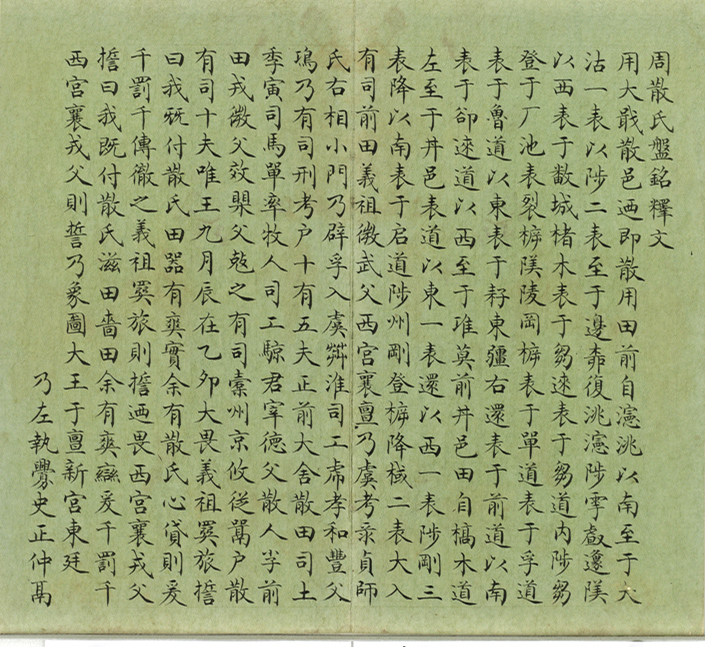 周散氏盤銘釋文
用大戢散邑迺即散用田前自瀗洮以南至于大
沽一表以陟二表至于邊桒復洮瀗陟雩䖒邍陕
以西表于敽城楮木表于芻逨表于芻道內陟芻
登于厂池表裂㯱陕陵岡㯱表于單道表于孚道
表于魯道以東表于耔東疆右還表于前道以南
表于郤逨道以西至于琟莫前丼邑田自槁木道
左至于丼邑表道以東一表還以西一表陟剛三
表降以南表于启道陟州剛登㯱降棫二表大入
有司前田義祖微武父西宮襄亶乃虞考彔貞師
氏右相小門乃辟孚入虞茻淮司工虎孝和豐父
鳿乃有司刑考户十有五夫正前大舍散田司土
季寅司馬單率牧人司工騬君宰德父散人芉前
田戎微父效㮚父䞘之有司橐州京攸從鬲户散
有司十夫唯王九月辰在乙夘大畏義祖㝢旅㨪
曰我旣付散氏田器有爽實余有散氏心貸則爰
千罰千傳徹之義祖㝢旅則㨪迺畏西宮襄戎父
㨪曰我既付散氏滋田嗇田余有爽䜌爰千罰千
西宮襄戎父則誓乃象圖大王于亶新宮東廷
乃左執舋史正仲鬲